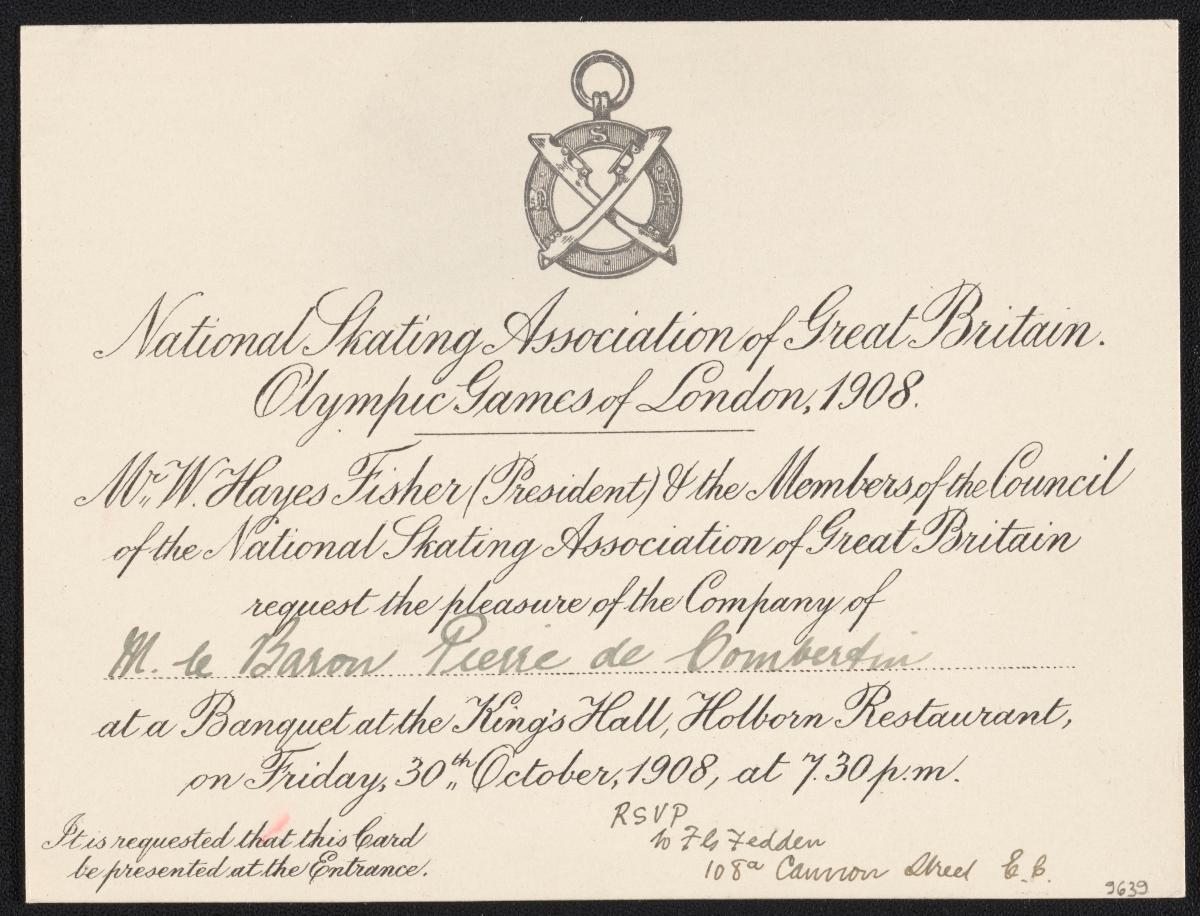 N S A
National Skating Association of Great Britain.
Olympic Games of London, 1908.
Mr. W. Hayes Fisher (President) & the Members of the Council
of the National Skating Association of Great Britain
request the pleasure of the Company of
M. le Baron Pierre de Combertin
at a Banquet at the King's Hall, Holborn Restaurant,
on Friday, 30th October, 1908, at 7.30 p.m.
It is requested that this Card
be presented at the Entrance.
RSVP
to F G Fedden
108a Cannon Street E.C.
9639